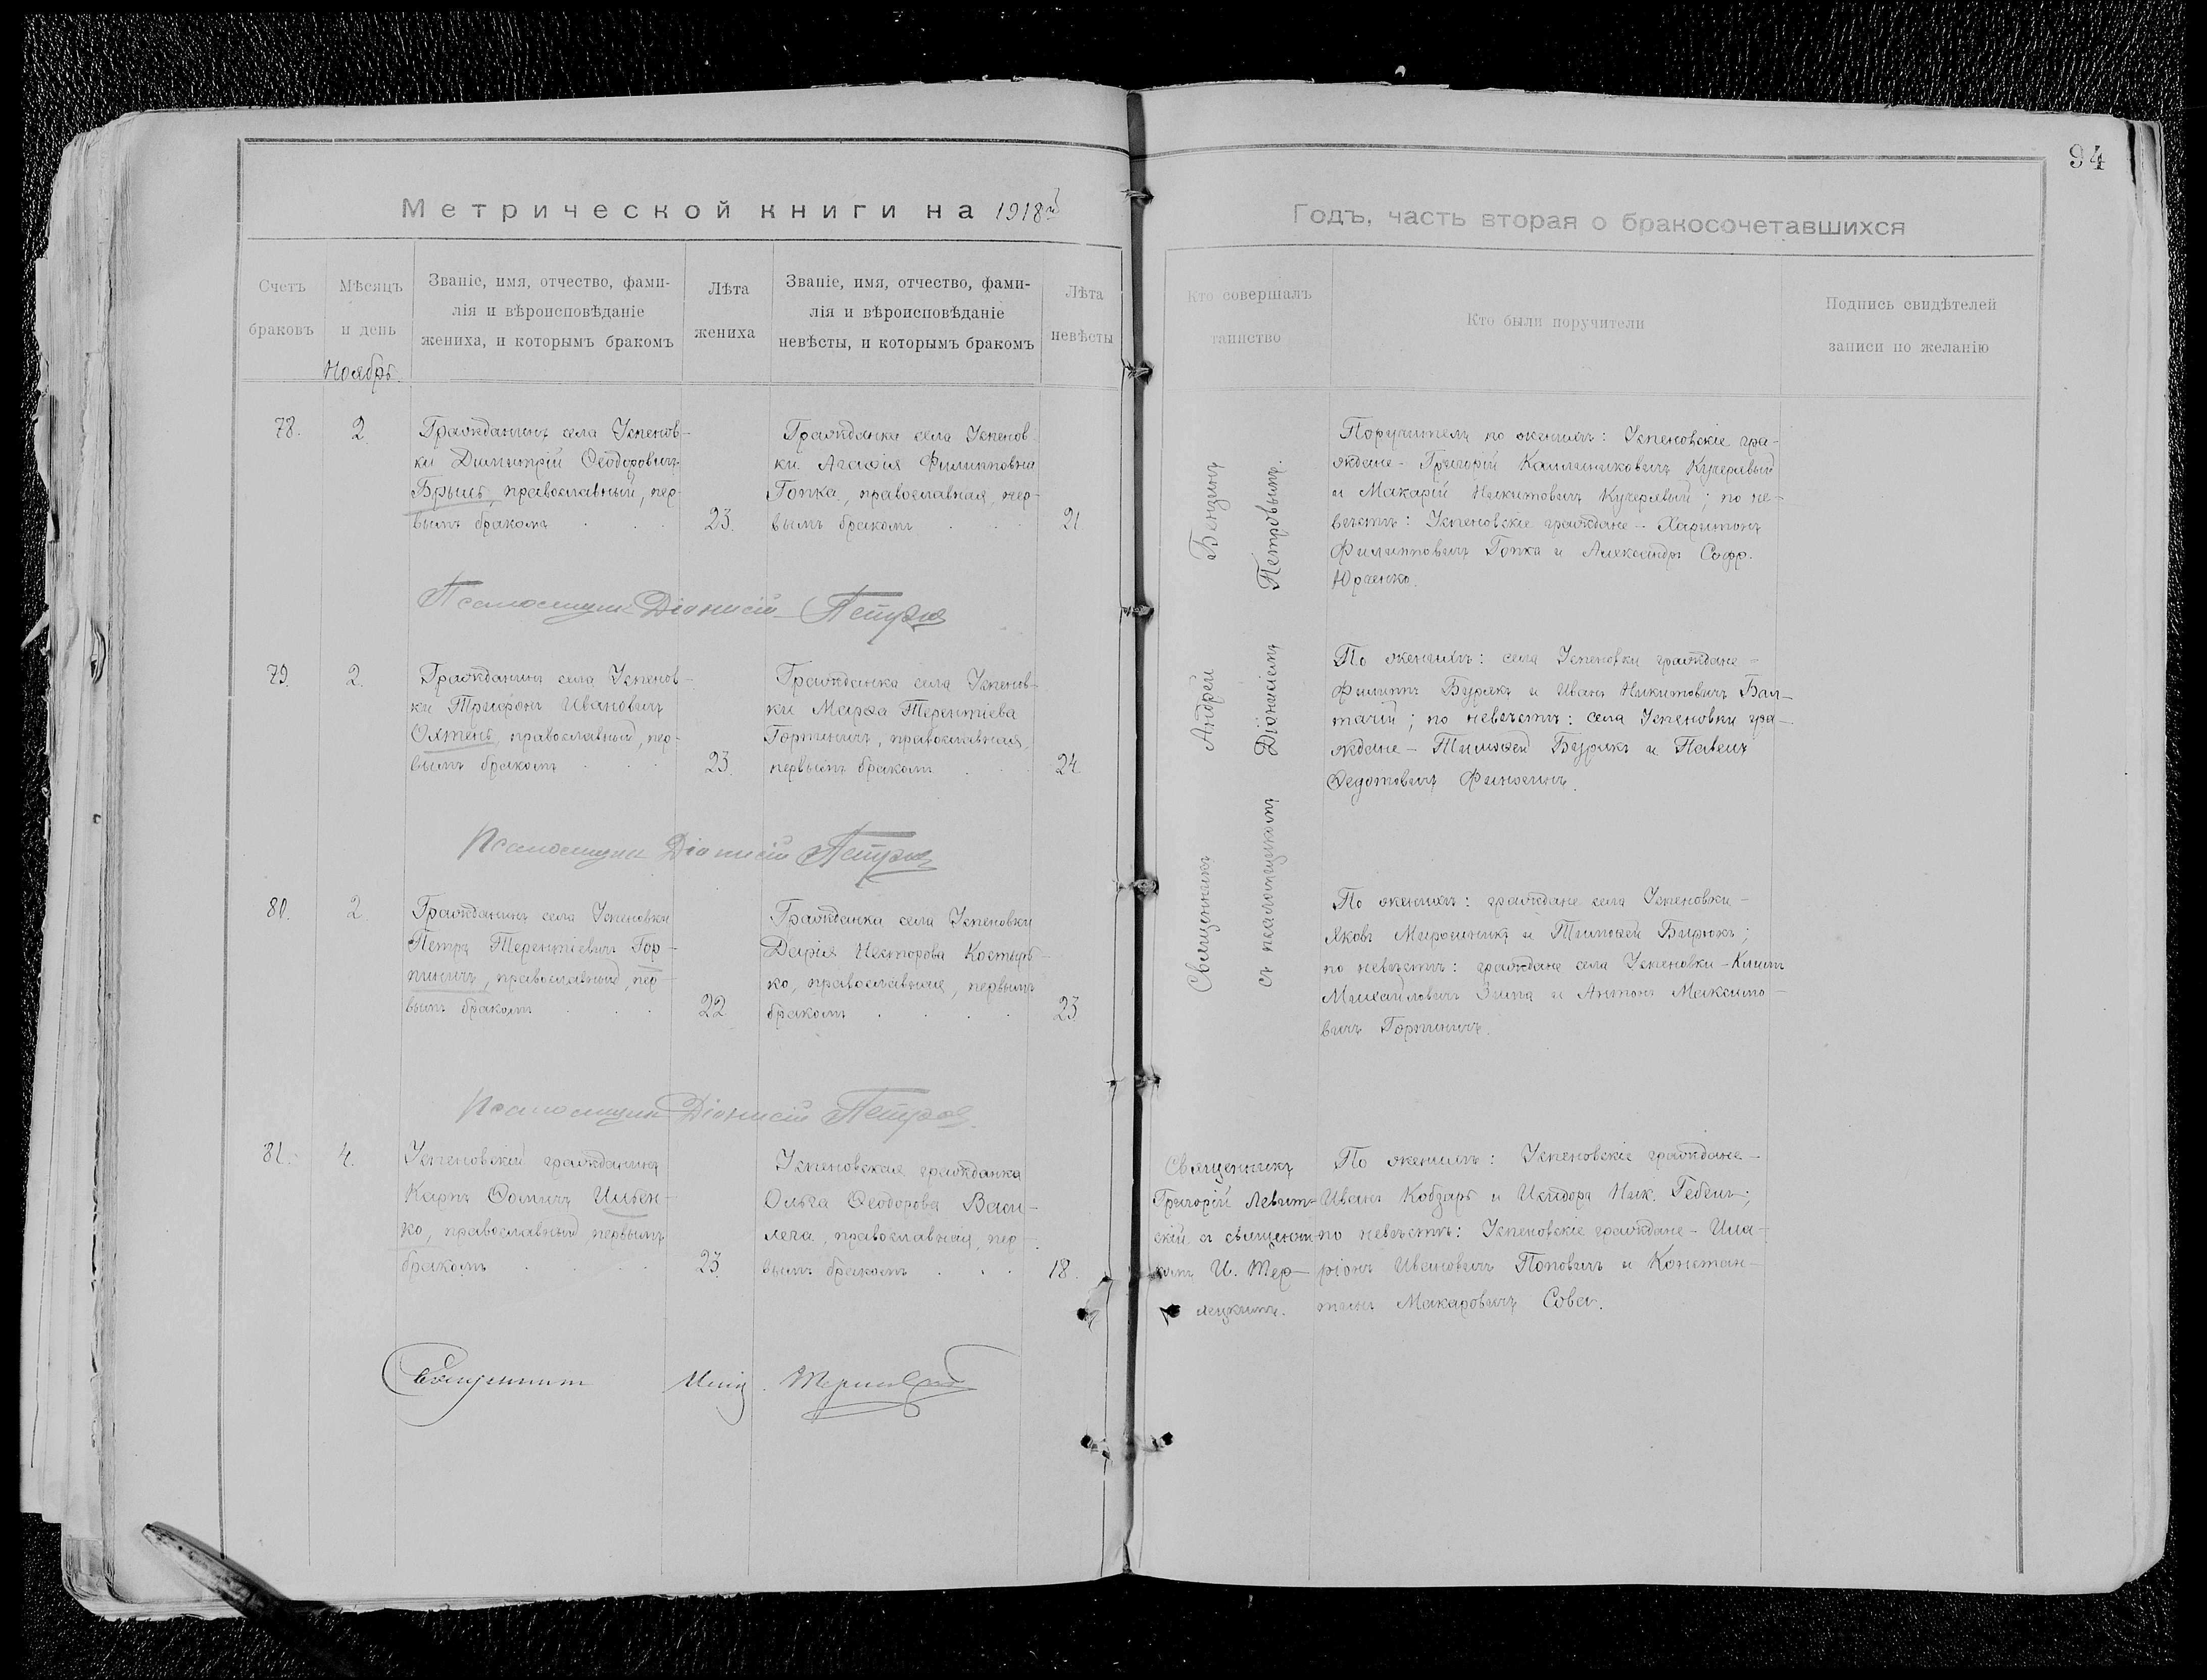 94
Метрической книги на 1918й
Годъ, часть вторая о бракосочетавшихся
Счетъ
браковъ
Мѣсяцъ
и день
Ноябрь.
Званіе, имя, отчество, фами-
лія и вѣроисповѣданіе
жениха, и которымъ бракомъ
Лѣта
жениха
Званіе, имя, отчество, фами-
лія и вѣроисповѣданіе
невѣсты, и которымъ бракомъ
Лѣта
невѣсты
Кто совершалъ
таинство
Кто были поручители
Подпись свидѣтелей
записи по желанію
78.
2.
Гражданинъ села Успенов-
ки Димитрій Ѳеодоровичъ
православный, пер-
вымъ бракомъ
23.
Гражданка села Успенов-
ки Агафія Филипповна
Гопка, православная, пер-
вымъ бракомъ
21
Поручители по женихѣ: Успеновскіе гра-
ждане - Григорій Каллиниковичъ Кучерявый
и Макарій Никитовичъ Кучерявый; по не-
вѣстѣ: Успеновскіе граждане - Харитонъ
Филипповичъ Гопка и Александръ Софр.
Юрченко.
Псаломщикъ Діонисій Петровъ
79.
2.
Гражданинъ села Успенов-
ки Трифонъ Ивановичъ
православный, пер-
вымъ бракомъ
23.
Гражданка села Успенов-
ки Марѳа Терентіева
Горпиничъ, православная,
первымъ бракомъ
24.
По женихѣ: села Успеновки граждане -
Филиппъ Бурякъ и Иванъ Никитовичъ Бал-
тачій; по невѣстѣ: села Успеновки гра-
ждане - Тимоѳей Бурякъ и Павелъ
Ѳедотовичъ
Псаломщикъ Діонисій Петровъ
80.
2.
Гражданинъ села Успеновки
Петръ Терентіевичъ Гор-
пиничъ, православный, пер-
вымъ бракомъ
22
Гражданка села Успеновки
Дарія Несторова Костыр-
ко, православная, первымъ
бракомъ
23.
По женихѣ: граждане села Успеновки -
Яковъ Мирошникъ и Тимоѳей Бирюкъ;
по невѣстѣ: граждане села Успеновки - Климъ
Михайловичъ Зима и Антонъ Максимо-
вичъ Горпиничъ.
Священникъ Андрей Бензинъ
съ псаломщикомъ Діонисіемъ Петровымъ.
Псаломщикъ Діонисій Петровъ.
81.
4.
Успеновскій гражданинъ
Карпъ Ѳомичъ Ильен-
ко, православный, первымъ
бракомъ
23.
Успеновская гражданка
Ольга Ѳеодорова Васи-
лега, православная, пер-
вымъ бракомъ
18.
Священникъ
Григорій Левит-
скій съ священни-
комъ И. Тер-
лецкимъ.
По женихѣ: Успеновскіе граждане -
Иванъ Кобзарь и Исидоръ Ник.
по невѣстѣ: Успеновскіе граждане - Ила-
ріонъ Ивановичъ Поповичъ и Констан-
тинъ Макаровичъ Сова.
Священникъ